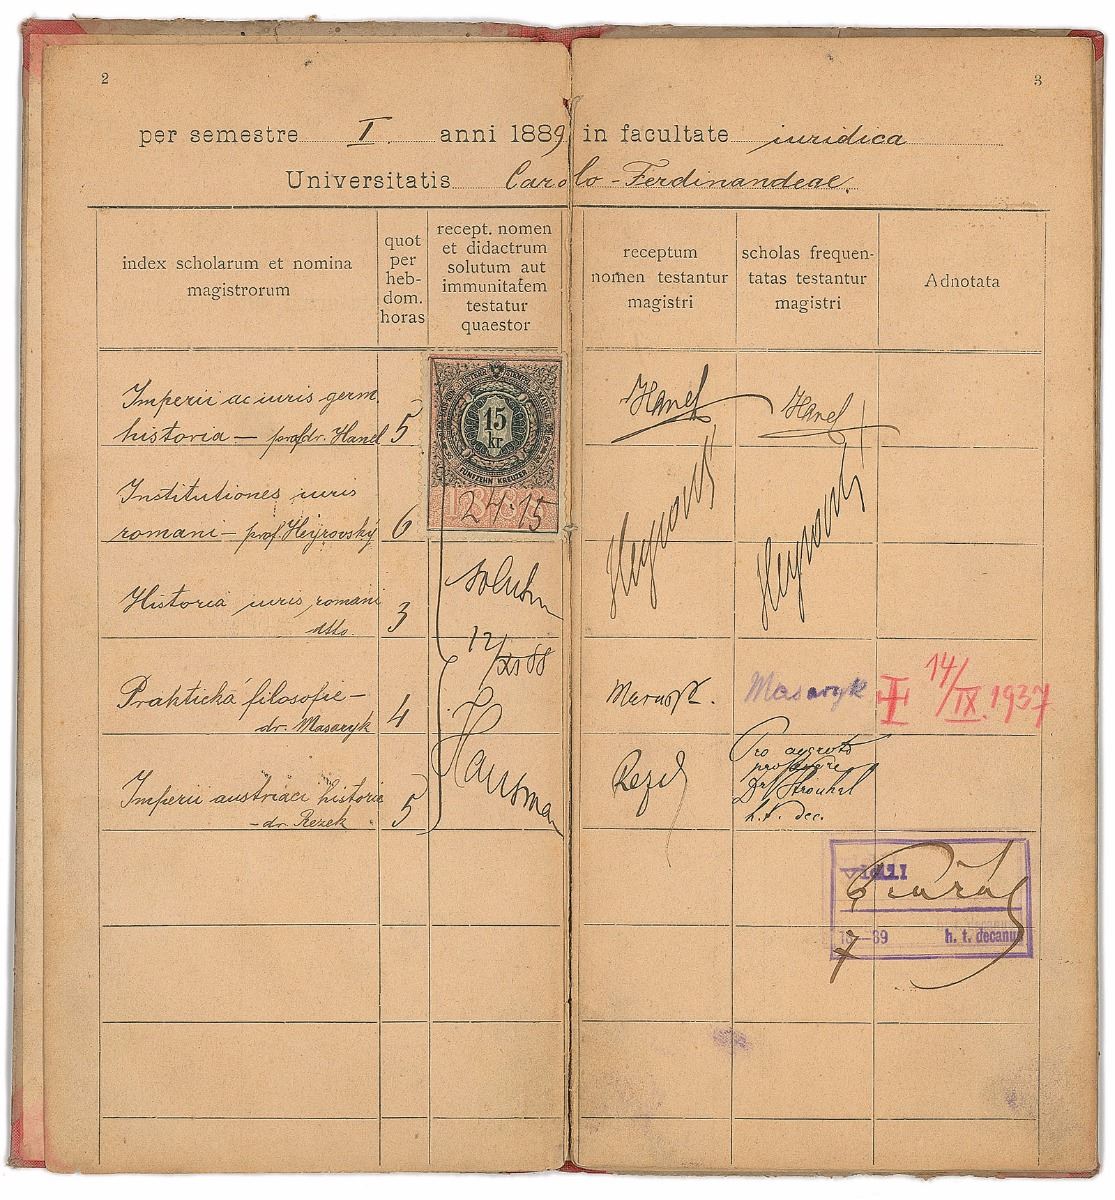 2
3
per semestre I. anni 1889 in facultate iuridica
Universitatis Carolo-Ferdinandeae.
index scholarum et nomina
magistrorum
quot
per
heb-
dom.
horas
recept. nomen
et didactrum
solutum aut
immunitatem
testatur
quaestor
receptum
nomen testantur
magistri
scholas frequen-
tatas testantur
magistri
Adnotata
Imperii ac iuris germ.
historia — prof. dr. Hanel 5
15
kr
FÜNFZEHN KREUZER
188
24.15
Hanel
Hanel
Institutiones iuris
romani — prof. Heyrovský 6
Heyrovský
Heyrovský
Historia iuris romani
dtto. 3
solutum
12/XI 88
Praktická filosofie —
dr. Masaryk 4
Masaryk.
Masaryk
14/IX. 1937
Imperii austriaci historia
— dr. Rezek 5
Rezek
Pro aegroto
professore
Dr Strouhal
h. t. dec.
vidi
18 — 89 h. t. decanus
7